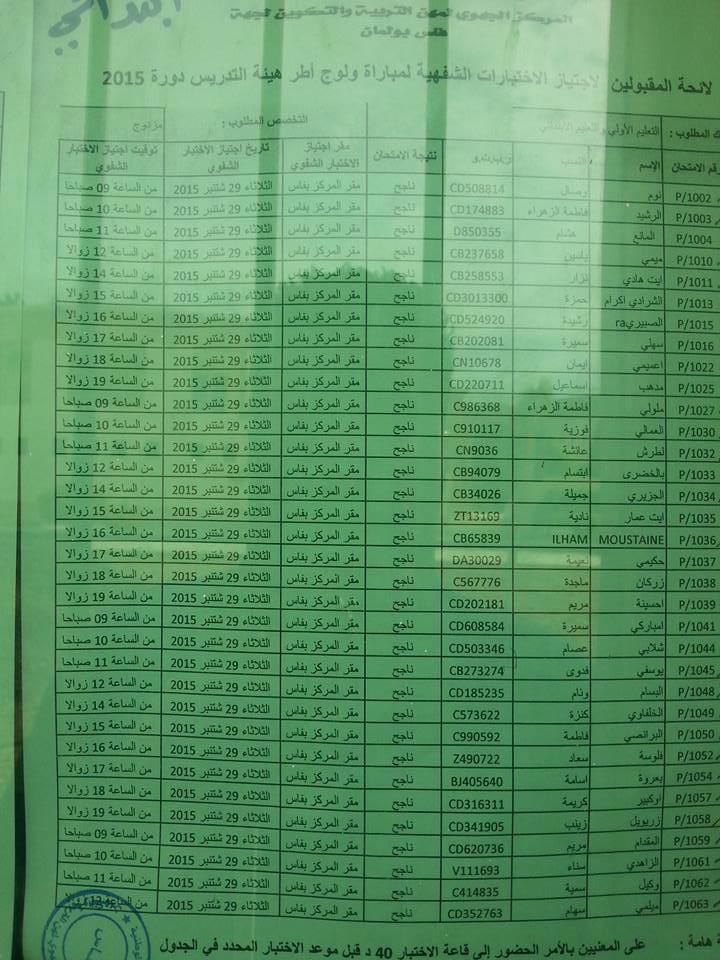 ابتدائي
المركز الجهوي لمهن التربية والتكوين لجهة
فاس بولمان
لائحة المقبولين لاجتياز الاختبارات الشفهية لمباراة ولوج أطر هيئة التدريس دورة 2015
المطلوب : التعليم الأولي والتعليم الابتدائي التخصص المطلوب : مزدوج
رقم الامتحان الإسم النسب ر.ب.ت.و نتيجة الامتحان مقر اجتياز الاختبار الشفوي تاريخ اجتياز الاختبار الشفوي توقيت اجتياز الاختبار الشفوي
P/1002 نوم رصال CD508814 ناجح مقر المركز بفاس الثلاثاء 29 شتنبر 2015 من الساعة 09 صباحا
P/1003 الرشيد فاطمة الزهراء CD174883 ناجح مقر المركز بفاس الثلاثاء 29 شتنبر 2015 من الساعة 10 صباحا
P/1004 المانع هشام D850355 ناجح مقر المركز بفاس الثلاثاء 29 شتنبر 2015 من الساعة 11 صباحا
P/1010 ميمي ياسين CB237658 ناجح مقر المركز بفاس الثلاثاء 29 شتنبر 2015 من الساعة 12 زوالا
P/1011 ايت هادي نزار CB258553 ناجح مقر المركز بفاس الثلاثاء 29 شتنبر 2015 من الساعة 14 زوالا
P/1013 الشرادي اكرام حمزة CD3013300 ناجح مقر المركز بفاس الثلاثاء 29 شتنبر 2015 من الساعة 15 زوالا
P/1015 الصبيريra رشيدة CD524920 ناجح مقر المركز بفاس الثلاثاء 29 شتنبر 2015 من الساعة 16 زوالا
P/1016 سهلي سميرة CB202081 ناجح مقر المركز بفاس الثلاثاء 29 شتنبر 2015 من الساعة 17 زوالا
P/1022 اعميمي ايمان CN10678 ناجح مقر المركز بفاس الثلاثاء 29 شتنبر 2015 من الساعة 18 زوالا
P/1025 مذهب اسماعيل CD220711 ناجح مقر المركز بفاس الثلاثاء 29 شتنبر 2015 من الساعة 19 زوالا
P/1027 ملولي فاطمة الزهراء C986368 ناجح مقر المركز بفاس الثلاثاء 29 شتنبر 2015 من الساعة 09 صباحا
P/1030 العمالي فوزية C910117 ناجح مقر المركز بفاس الثلاثاء 29 شتنبر 2015 من الساعة 10 صباحا
P/1032 لطرش عائشة CN9036 ناجح مقر المركز بفاس الثلاثاء 29 شتنبر 2015 من الساعة 11 صباحا
P/1033 بالخضرى ابتسام CB94079 ناجح مقر المركز بفاس الثلاثاء 29 شتنبر 2015 من الساعة 12 زوالا
P/1034 الجزيري جميلة CB34026 ناجح مقر المركز بفاس الثلاثاء 29 شتنبر 2015 من الساعة 14 زوالا
P/1035 ايت عمار نادية ZT13169 ناجح مقر المركز بفاس الثلاثاء 29 شتنبر 2015 من الساعة 15 زوالا
P/1036 MOUSTAINE ILHAM CB65839 ناجح مقر المركز بفاس الثلاثاء 29 شتنبر 2015 من الساعة 16 زوالا
P/1037 حكيمي نعيمة DA30029 ناجح مقر المركز بفاس الثلاثاء 29 شتنبر 2015 من الساعة 17 زوالا
P/1038 زركان ماجدة C567776 ناجح مقر المركز بفاس الثلاثاء 29 شتنبر 2015 من الساعة 18 زوالا
P/1039 احسينة مريم CD202181 ناجح مقر المركز بفاس الثلاثاء 29 شتنبر 2015 من الساعة 19 زوالا
P/1041 امباركي سميرة CD608584 ناجح مقر المركز بفاس الثلاثاء 29 شتنبر 2015 من الساعة 09 صباحا
P/1044 شلابي عصام CD503346 ناجح مقر المركز بفاس الثلاثاء 29 شتنبر 2015 من الساعة 10 صباحا
P/1045 يوسفي فدوى CB273274 ناجح مقر المركز بفاس الثلاثاء 29 شتنبر 2015 من الساعة 11 صباحا
P/1048 البسام وئام CD185235 ناجح مقر المركز بفاس الثلاثاء 29 شتنبر 2015 من الساعة 12 زوالا
P/1049 الخلفاوي كنزة C573622 ناجح مقر المركز بفاس الثلاثاء 29 شتنبر 2015 من الساعة 14 زوالا
P/1050 البرانصي فاطمة C990592 ناجح مقر المركز بفاس الثلاثاء 29 شتنبر 2015 من الساعة 15 زوالا
P/1052 فلوسة سعاد Z490722 ناجح مقر المركز بفاس الثلاثاء 29 شتنبر 2015 من الساعة 16 زوالا
P/1054 بعروة اسامة BJ405640 ناجح مقر المركز بفاس الثلاثاء 29 شتنبر 2015 من الساعة 17 زوالا
P/1057 اوكبير كريمة CD316311 ناجح مقر المركز بفاس الثلاثاء 29 شتنبر 2015 من الساعة 18 زوالا
P/1058 زريويل زينب CD341905 ناجح مقر المركز بفاس الثلاثاء 29 شتنبر 2015 من الساعة 19 زوالا
P/1059 المقدام مريم CD620736 ناجح مقر المركز بفاس الثلاثاء 29 شتنبر 2015 من الساعة 09 صباحا
P/1061 الزاهدي سناء V111693 ناجح مقر المركز بفاس الثلاثاء 29 شتنبر 2015 من الساعة 10 صباحا
P/1062 وكيل سمية C414835 ناجح مقر المركز بفاس الثلاثاء 29 شتنبر 2015 من الساعة 11 صباحا
P/1063 ميلمي سهام CD352763 ناجح مقر المركز بفاس الثلاثاء 29 شتنبر 2015 من الساعة 12 زوالا
هامة : على المعنيين بالأمر الحضور إلى قاعة الاختبار 40 د قبل موعد الاختبار المحدد في الجدول